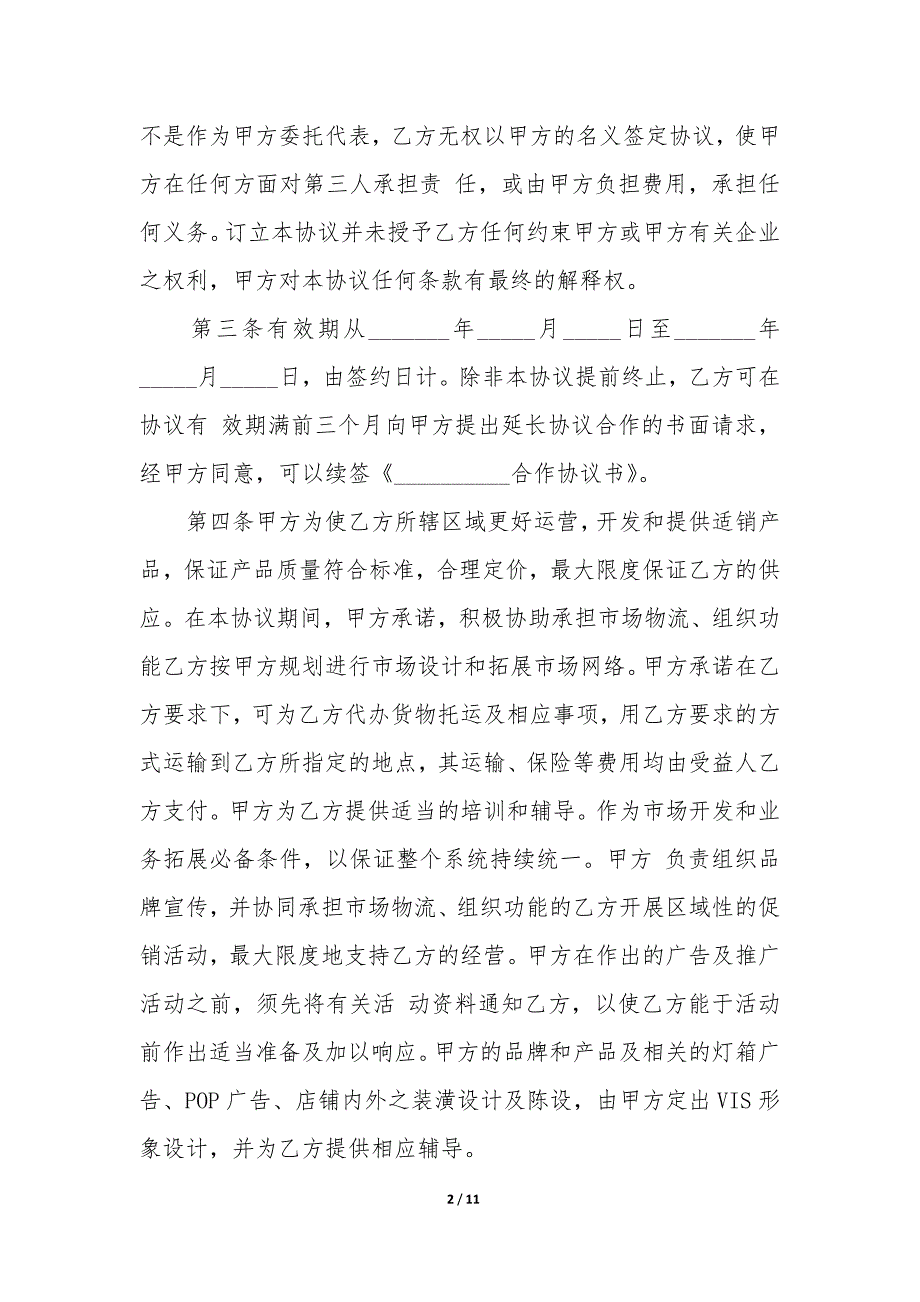 不是作为甲方委托代表，乙方无权以甲方的名义签定协议，使甲
方在任何方面对第三人承担责 任，或由甲方负担费用，承担任
何义务。订立本协议并未授予乙方任何约束甲方或甲方有关企业
之权利，甲方对本协议任何条款有最终的解释权。
第三条有效期从_______年_____月_____日至_______年
_____月_____日，由签约日计。除非本协议提前终止，乙方可在
协议有 效期满前三个月向甲方提出延长协议合作的书面请求，
经甲方同意，可以续签《__________合作协议书》。
第四条甲方为使乙方所辖区域更好运营，开发和提供适销产
品，保证产品质量符合标准，合理定价，最大限度保证乙方的供
应。在本协议期间，甲方承诺，积极协助承担市场物流、组织功
能乙方按甲方规划进行市场设计和拓展市场网络。甲方承诺在乙
方要求下，可为乙方代办货物托运及相应事项，用乙方要求的方
式运输到乙方所指定的地点，其运输、保险等费用均由受益人乙
方支付。甲方为乙方提供适当的培训和辅导。作为市场开发和业
务拓展必备条件，以保证整个系统持续统一。甲方 负责组织品
牌宣传，并协同承担市场物流、组织功能的乙方开展区域性的促
销活动，最大限度地支持乙方的经营。甲方在作出的广告及推广
活动之前，须先将有关活 动资料通知乙方，以使乙方能于活动
前作出适当准备及加以响应。甲方的品牌和产品及相关的灯箱广
告、POP 广告、店铺内外之装潢设计及陈设，由甲方定出 VIS 形
象设计，并为乙方提供相应辅导。
2 / 11